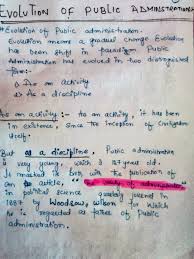 EVOLUTION OF PUBLIC ADMINISTRATION
Evolution of Public administration.
Evolution means a gradual change Evolution
has been Public
Administration has evolved in two distinguished
form:-
1) As an activity
2) As a discipline
As an activity:- As an activity, it has been
in existence, since the inception of
But as a discipline, Public administration
is very young, which is 137 years old.
It marked its birth with the publication of
an article, " study of administration"
in political science quarterly journal in
1887 by Woodrow Wilson for which
he is regarded as father of Public
administration.